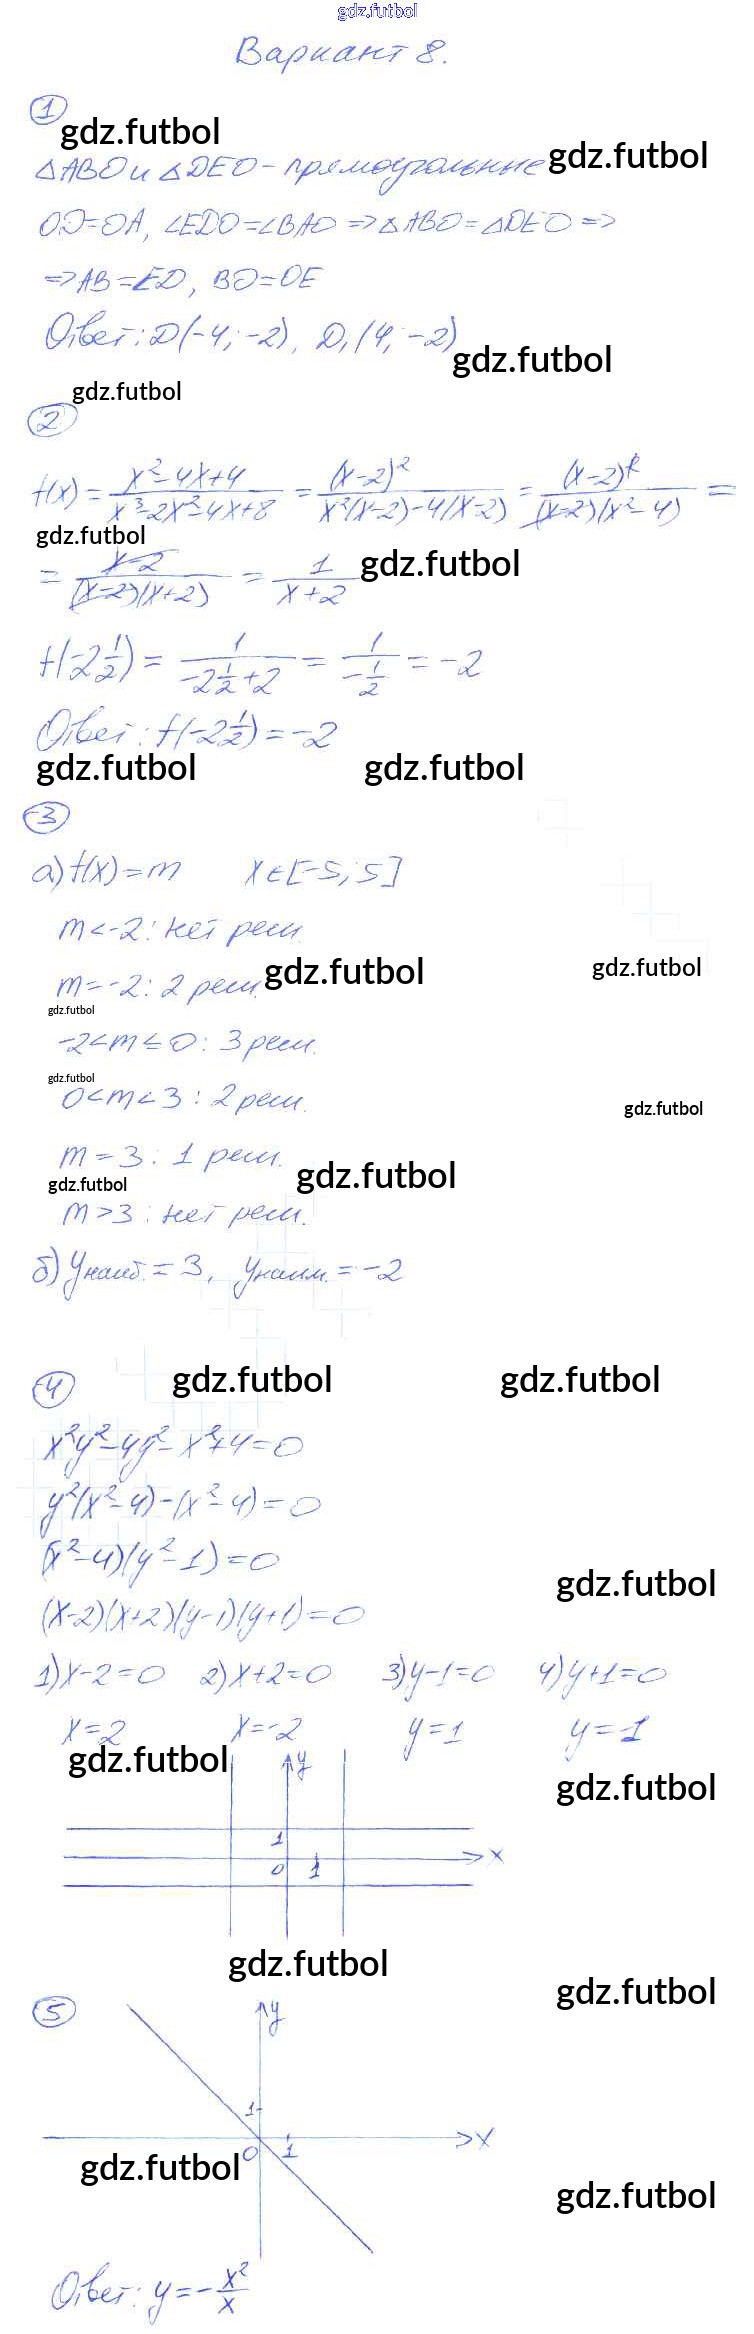 gdz.futbol
Вариант 8.
1
gdz.futbol
gdz.futbol
△ABO и △DEO - прямоугольные
OD=OA, ∠EDO=∠BAO => △ABO=△DEO =>
=> AB=ED, BO=OE
Ответ: D(-4; -2), D₁(4; -2)
gdz.futbol
gdz.futbol
2
f(x) = (x²-4x+4)/(x³-2x²-4x+8) = (x-2)²/(x²(x-2)-4(x-2)) = (x-2)²/((x-2)(x²-4)) =
gdz.futbol
= (x-2)/((x-2)(x+2)) = 1/(x+2)
gdz.futbol
f(-2 1/2) = 1/(-2 1/2 + 2) = 1/(-1/2) = -2
Ответ: f(-2 1/2) = -2
gdz.futbol
gdz.futbol
3
а) f(x) = m x∈[-5; 5]
m < -2: нет реш.
gdz.futbol
m = -2: 2 реш.
gdz.futbol
gdz.futbol
-2 < m ≤ 0: 3 реш.
gdz.futbol
0 < m < 3: 2 реш.
gdz.futbol
m = 3: 1 реш.
gdz.futbol
gdz.futbol
m > 3: нет реш.
б) yнаиб. = 3, yнаим. = -2
4
gdz.futbol
gdz.futbol
x²y²-4y²-x²+4=0
y²(x²-4)-(x²-4)=0
(x²-4)(y²-1)=0
gdz.futbol
(x-2)(x+2)(y-1)(y+1)=0
1) x-2=0 2) x+2=0 3) y-1=0 4) y+1=0
x=2 x=-2 y=1 y=-1
gdz.futbol
gdz.futbol
y
1
0 1 x
gdz.futbol
gdz.futbol
5
y
1
0 1 x
gdz.futbol
gdz.futbol
Ответ: y = -x²/x